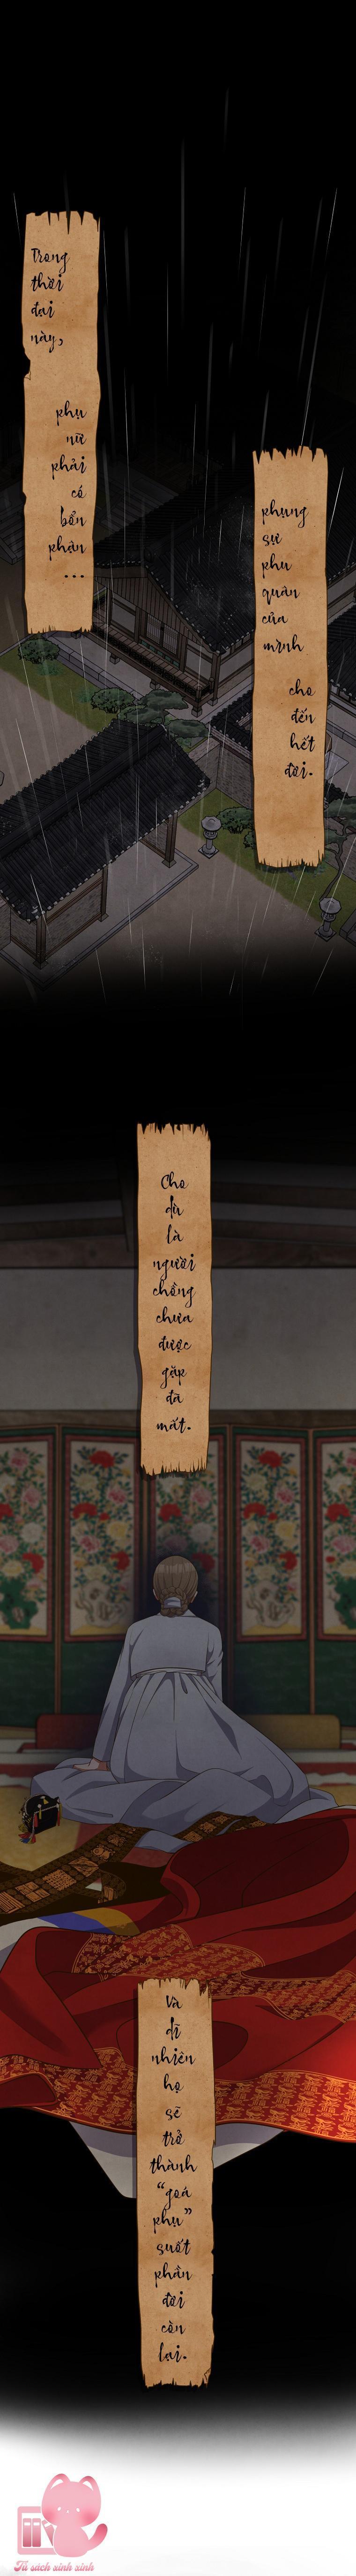 Trong
thời
đại
này,
phụ
nữ
phải
có
bổn
phận
...
phụng
sự
phu
quân
của
mình
cho
đến
hết
đời.
Cho
dù
là
người
chồng
chưa
được
gặp
đã
mất.
Và
dĩ
nhiên
họ
sẽ
trở
thành
“goá
phụ”
suốt
phần
đời
còn
lại.
Tủ sách xinh xinh